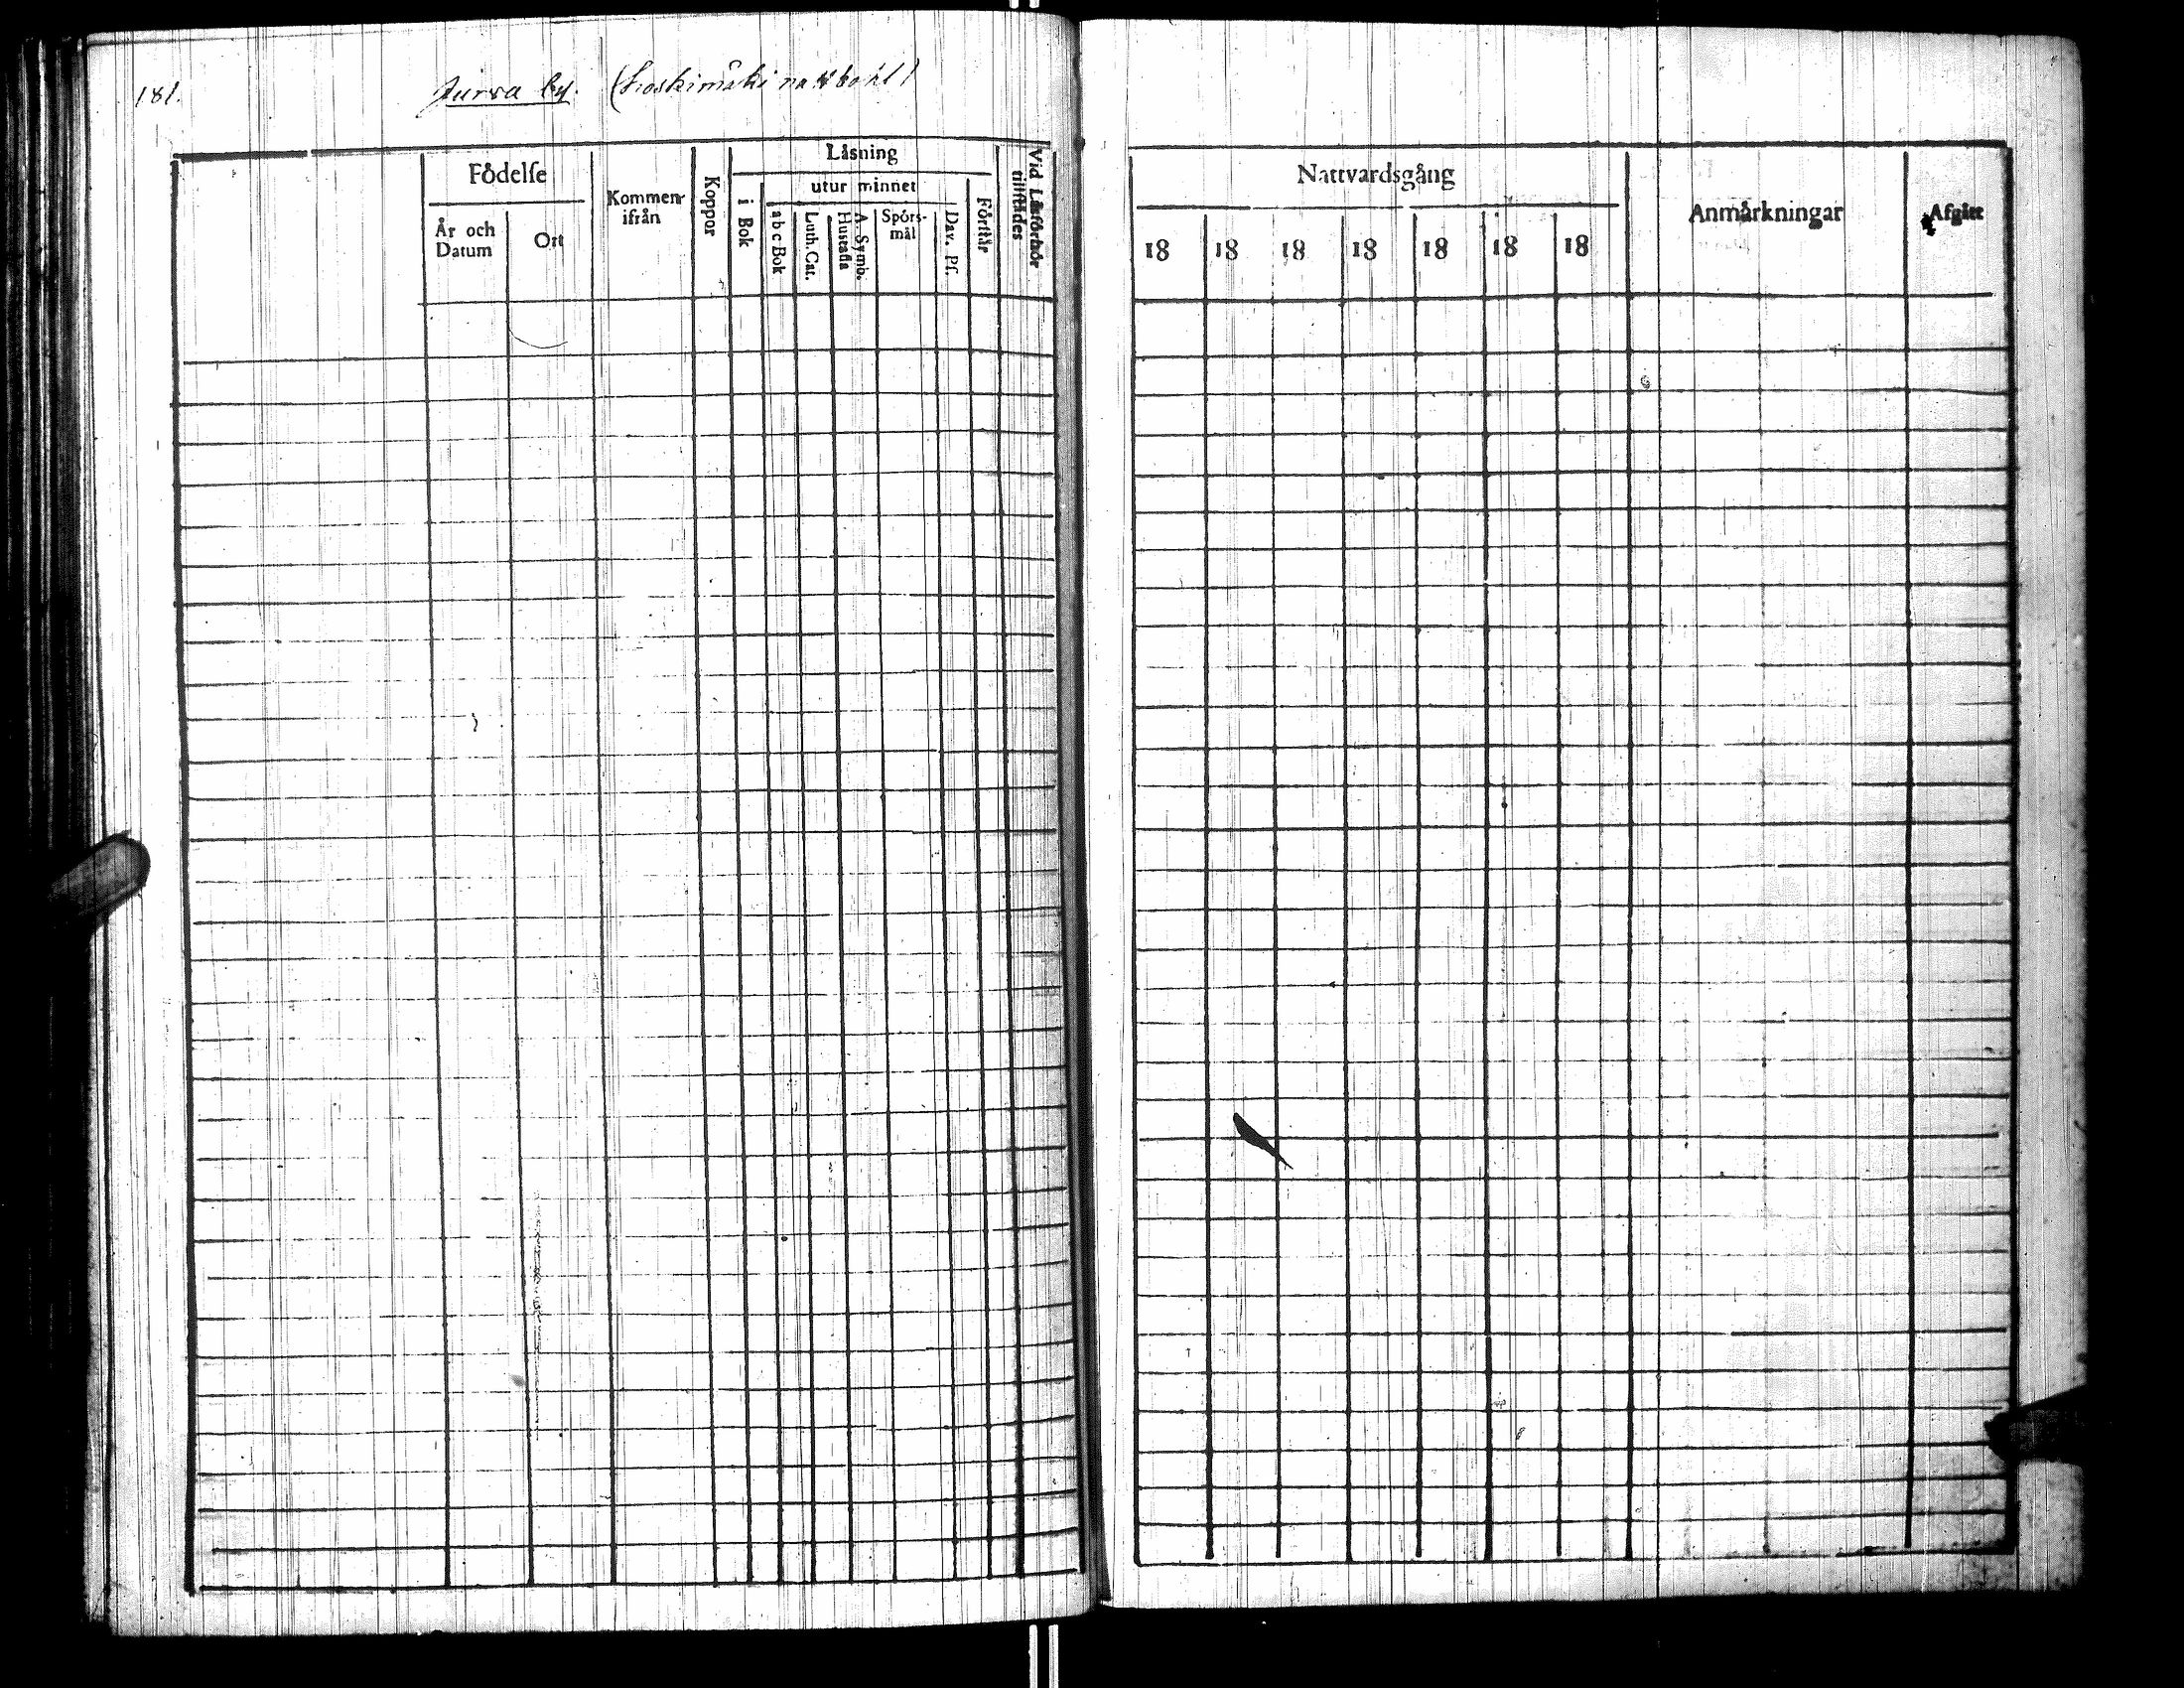 181.
Jurva by. (Koskimäki nattbohl)
Födelse
År och Datum
Ort
Kommen ifrån
Koppor
Läsning
i Bok
utur minnet
a b c Bok
Luth. Cat.
A. Symb. Hustafla
Spörsmål
Dav. Ps.
Förstår
Vid Läsförhör tillstädes
Nattvardsgång
18 18 18 18 18 18 18
Anmärkningar
Afgått